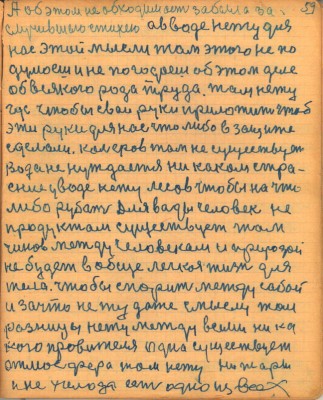 А об этом необходимает забыла за 59
случившего стихею а в воде нету для
нас этой мысли там этого не по
думаеш и не погодаеш об этом деле
обвсякого рода труда. там нету
чтобы свои руки приложить чтоб
эти руки для нас что либо в защите
сделали. колеров там не существует
вода не нуждается ни в каком стра-
снеи у воде нету лесов чтобы на что
либо рубат для вады человек не
продуктом существует там
чинов между человекам и природой
не будет вобще легкоя тизн для
тела. чтобы спорит между сабой
и за что нету даже смыслу там
разницы нету между всеми ни ка
кого правителя одна существует
атмосфера там нету ни жары
и не холода сат одно из всех